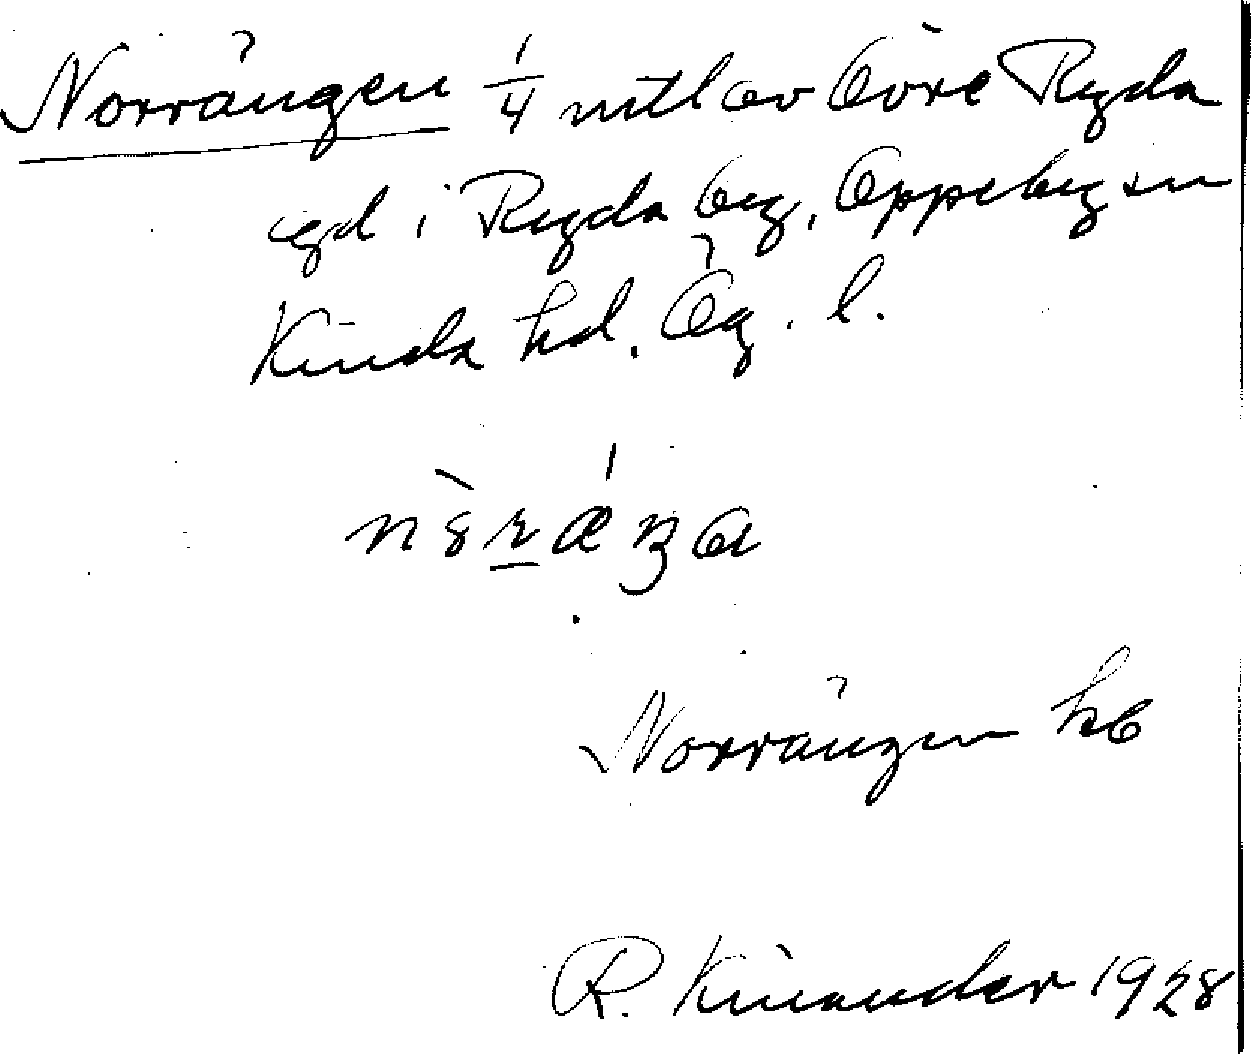 Norrängen 1/4 mtl av Övre Ryda
gd i Ryda by, Oppeby sn
Kinda hd. Ög. l.
Norrängen kb
R. Kinander 1928